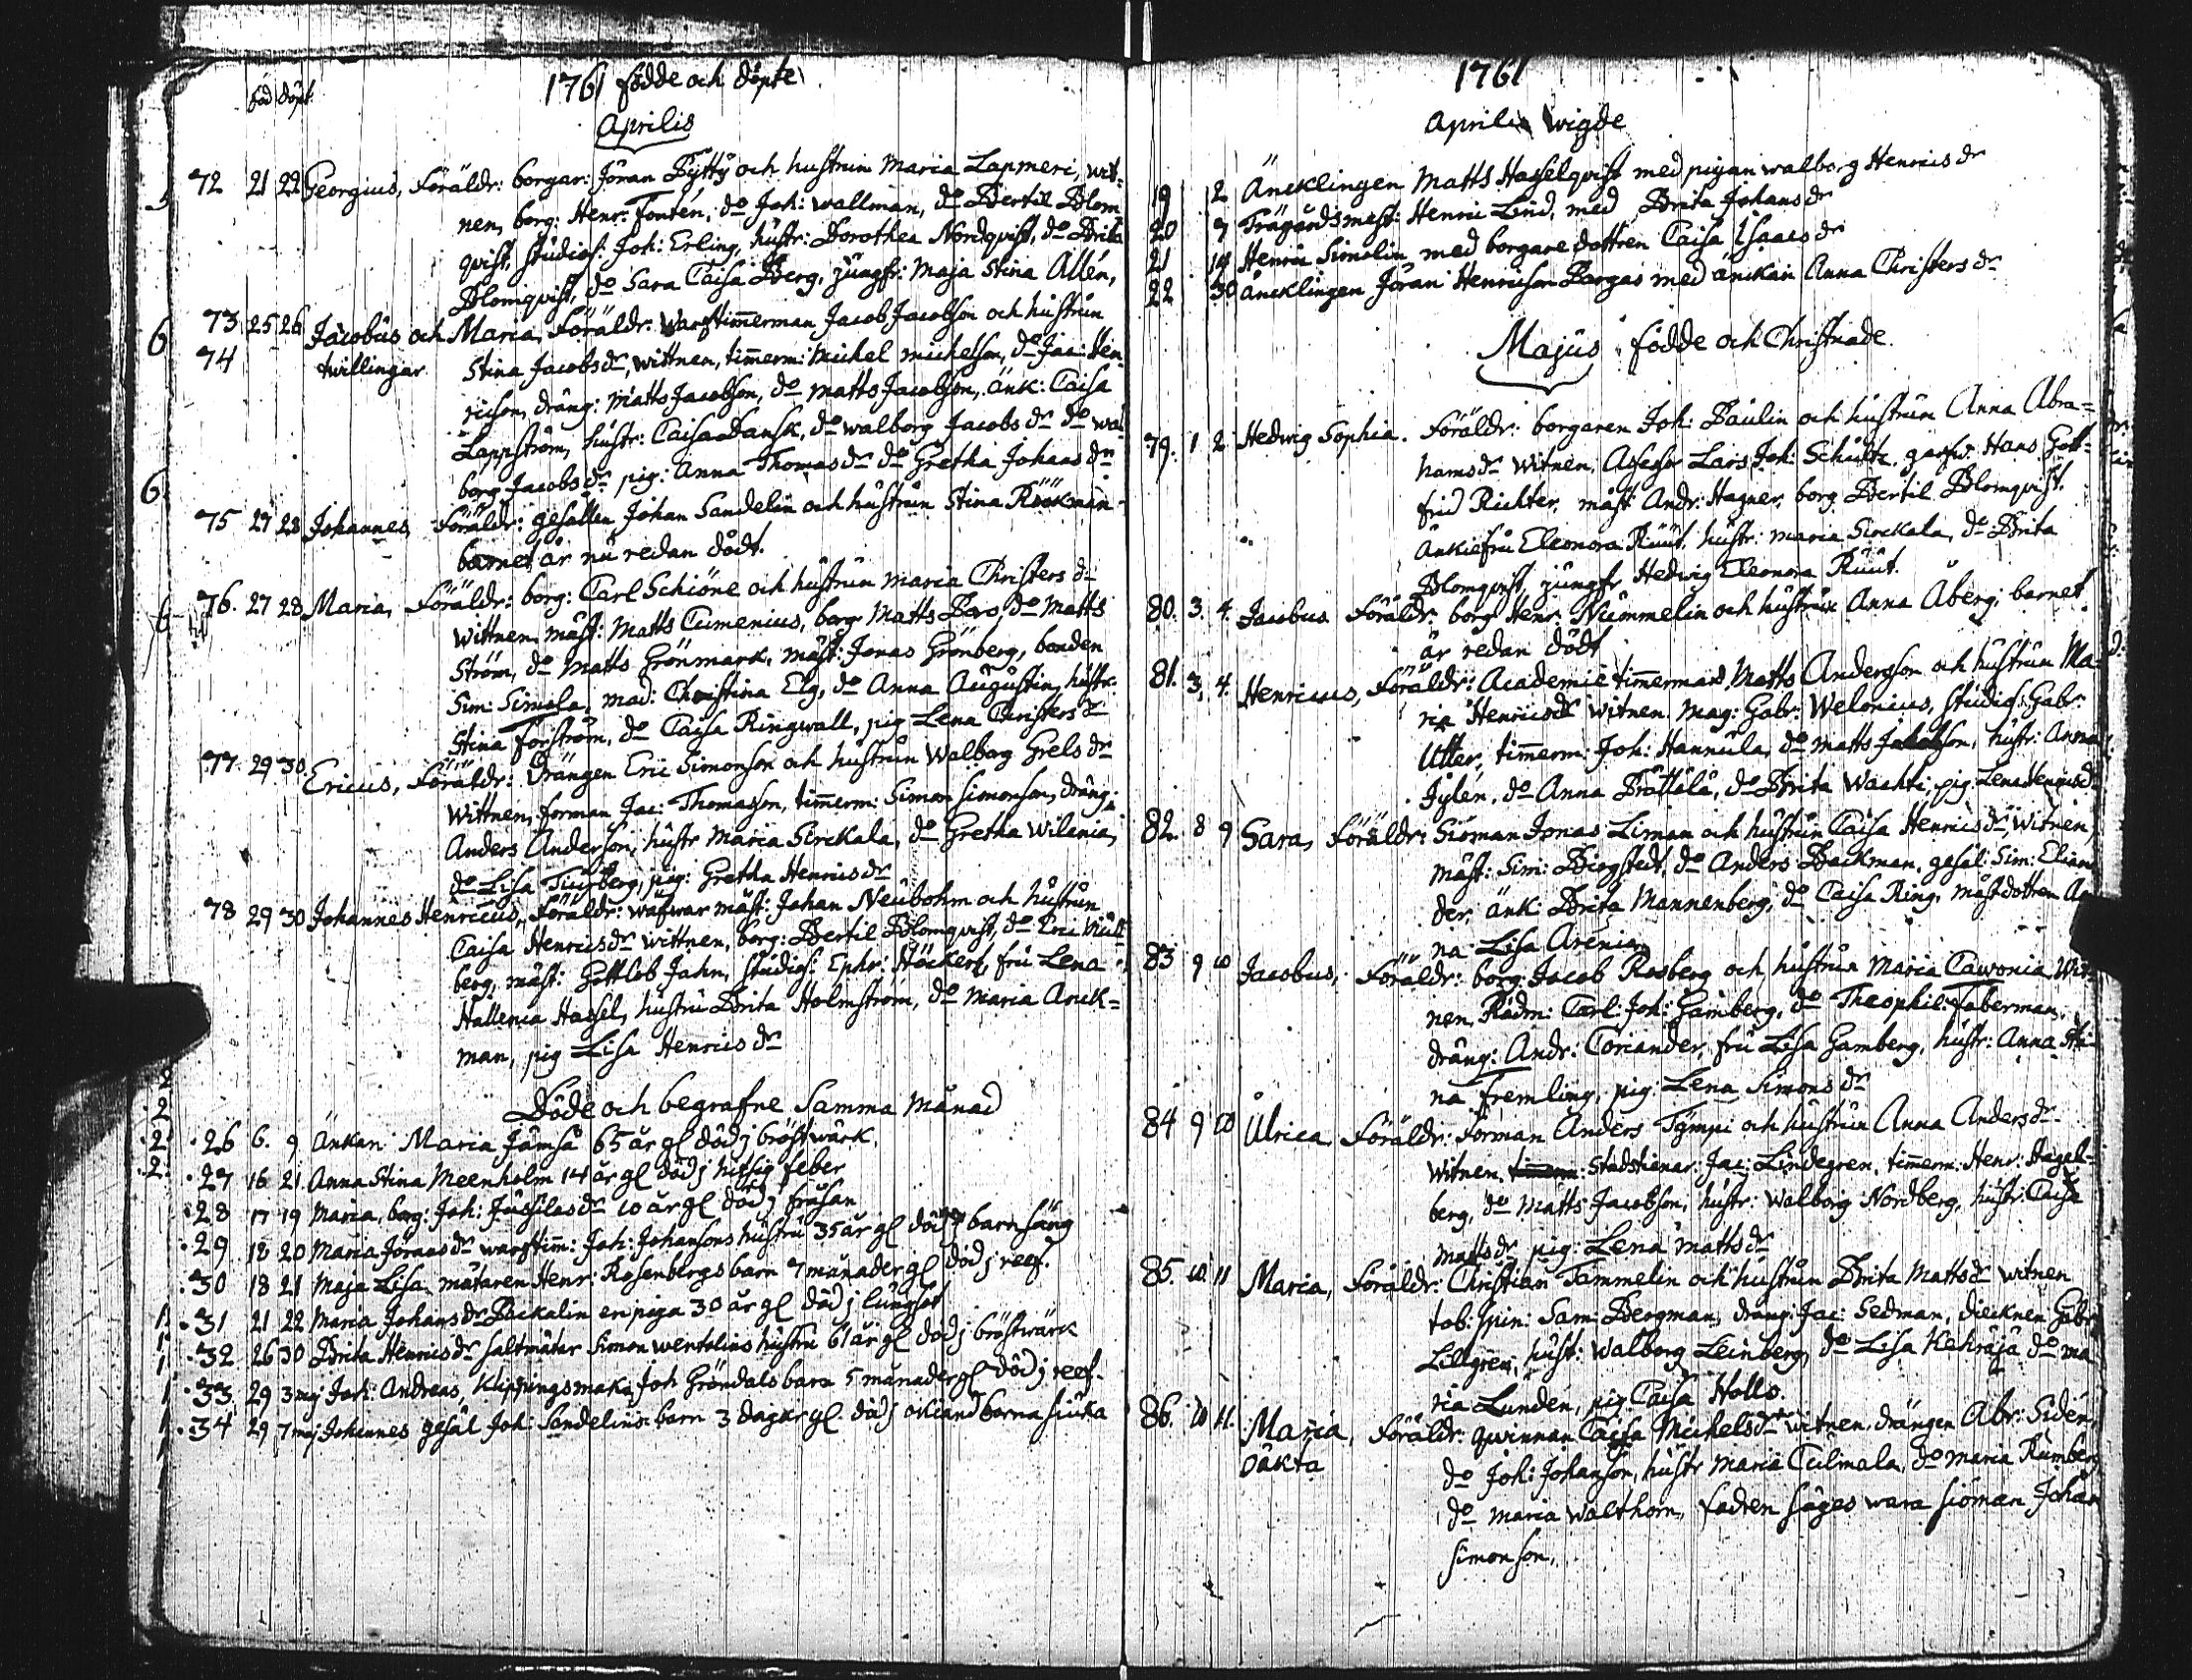 1761 födde och döpte
Aprilis
föd döpt
72 21 22 Georgius, Föräldr: borgar: Jöran Pytty och hustrun Maria Lapmeri, wit-
nen, borg: Henr: Fontén, do Joh: Wallman, do Bertil Blom
qvist, studios: Joh: Erling, hustr: Dorothea Nordqvist, do Brita
Blomqvist, do Sara Caisa Berg, jungfr: Maja Stina Allén,
73 25 26 Jacobus och Maria, Föräldr: Warfstimerman Jacob Jacobson och hustrun
74 twillingar Stina Jacobsdr, wittnen, timerm: Michel Michelson, do Jac: Hen
ricson, dräng: Matts Jacobson, do Matts Jacobson, änk: Caisa
Lappström, hustr: Caisa Dansk, do Walborg Jacobsdr do Wal
borg Jacobsdr pig: Anna Thomasdr do Gretha Johansdr
75 27 28 Johannes Föräldr: gesällen Johan Sandelin och hustrun Stina Röökman
barnet är nu redan dödt.
76. 27 28 Maria, Föräldr: borg: Carl Schiöne och hustrun Maria Christersdr
Wittnen, mäst: Matts Cumenius, borg Matts Boro, do Matts
Ström, do Matts Grönmark, mäst: Jonas Grönberg, bonden
Sim: Simola, mad: Christina Elg, do Anna Augustin, hustr:
Stina Forsström, do Caisa Ringwall, pig Lena Christersdr
77. 29 30. Ericus, Föräldr: Drängen Eric Simonson och hustrun Walborg Grelsdr
Wittnen, forman Jac: Thomasson, timerm: Simon Simonson, dräng:
Anders Anderson, hustr Maria Sirckala, do Gretha Wilania,
do Lisa Tuurberg, pig: Gretha Henricsdr
78 29 30 Johannes Henricus, Föräldr: wäfwar mäst: Johan Neubohm och hustrun
Caisa Henricsdr wittnen, borg: Bertil Blomqvist, do Eric
berg, mäst: Gottlob Jahn, studios: Ephr: Höckert, fru Lena
Hallenia Hassel, hustru Brita Holmström, do Maria Anck-
man, pig Lisa Henricsdr
Döde och begrafne Samma Månad
26 6. 9 Änkan Maria Jämsä 65 år gl död j bröstwärk.
27 16 21 Anna Stina Meenholm 14 år gl död j hitsig feber
28 17 19 Maria, borg: Joh: Jussilas dr 10 år gl död j frusan
29 18 20 Maria Jöransdr warfstim: Joh: Johansons hustru 35 år gl död j barnsäng
30 18 21 Maja Lisa mätaren Henr: Rosenbergs barn 7 månader gl död j reef.
31 21 22 Maria Johansdr Backalin en piga 30 år gl död j lungsot
32 26 30 Brita Henricsdr saltmätar Simon Wentolins hustru 61 år gl död j bröstwärk
33 29 3 maj Joh: Andreas, Klippingsmak: Joh Gröndals barn 5 månader gl död j reef.
34 29 7 maj Johannes gesäl Joh Sandelins barn 3 dagar gl. död j okiand barnasiuka
1761
Aprilis wigde
19 2 Äncklingen Matts Hasselqvist med pigan Walborg Henricsdr
20 7 Trägårdsmest: Henric Lind, med Brita Johansdr
21 14 Henric Simolin med borgare dottren Caisa Isaacsdr
22 30 äncklingen Jöran Henricson Borgas med änckan Anna Christersdr
Majus födde och Christnade
79. 1 2 Hedwig Sophia. Föräldr: borgaren Joh: Paulin och hustrun Anna Abra-
hamsdr Witnen, Assessor Lars Joh: Schultz, garfw: Hans Gott-
frid Richter, mäst Andr: Hagner, borg Bertil Blomqvist.
Änkiefru Eleonora Ruut, hustr: Maria Sirckala, do Brita
Blomqvist, jungfr Hedwig Eleonora Ruut.
80. 3. 4. Jacobus Föräldr: borg Henr: Nummelin och hustrun Anna Åberg, barnet
är redan dödt
81. 3. 4. Henricus, Föräldr: Academie timermans Matts Andersson och hustrun Ma-
ria Henricsdr witnen Mag: Gabr: Welonius, studios: Gabr:
Utter, timerm: Joh: Hannula, do Matts Jakobson, hustr: Anna
Jylén, do Anna Prättälä, do Brita Wachti, pig Lena Henricsd
82. 8 9 Sara, Föräldr: Sioman Jonas Liman och hustrun Caisa Henricsdr, Witnen,
mäst: Sim: Bergstedt, do Anders Backman, gesäl: Sim: Elian
der, änk: Brita Mannenberg, do Caisa Ring, mäst dottren An
na Lisa Arenia
83 9 10 Jacobus, Föräldr: borg: Jacob Rosberg och hustrun Maria Cawonia, Wit-
nen, Rådm: Carl: Joh: Gamberg, do Theophil: Faberman,
dräng: Andr: Coriander, fru Lisa Gamberg, hustr: Anna Sti-
na Fremling, pig: Lena Simonsdr
84 9 10 Ulrica, Föräldr: Forman Anders Tympi och hustrun Anna Andersdr
Witnen, timerm: Stadstienar: Jac: Lindegren, timerm: Henr: Hagel-
berg, do Matts Jacobson, hustr: Walborg Nordberg, hustr: Caisa
Mattsdr, pig: Lena Mattsdr
85. 10. 11 Maria, Föräldr: Christian Tammelin och hustrun Brita Mattsdr witnen
tob: spin: Sam: Bergman, dräng: Jac: Sedman, diecknen Gabr
Lillgren, hust: Walborg Leinberg, do Lisa Kekräjä do Ma
ria Lunden, pig Caisa Hollo.
86. 10 11. Maria, Föräldr: qwinnan Caisa Michelsdr witnen, drängen Abr: Sidén,
oäkta do Joh: Johanson, hustr Maria Culmala, do Maria Rumberg
do Maria Walthorn, fadren säges wara sioman Johan
Simonson.